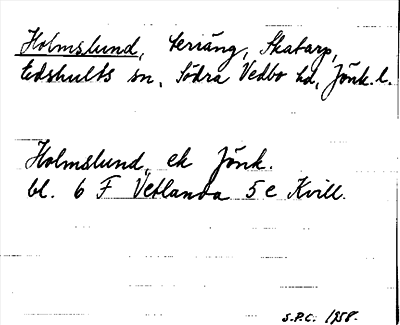 Holmslund, teräng, Skatarp,
Edshults sn, Södra Vedbo hd, Jönk. l.
Holmslund, ek Jönk.
bl. 6 F Vetlanda 5 e Kvill.
S.P.C. 1958.